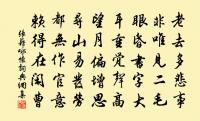 老去多悲事
非唯見二毛
眼昏書字大
耳重覺聲高
望月偏增思
尋山易發勞
都無作官意
賴得在閑曹
張籍詠懷